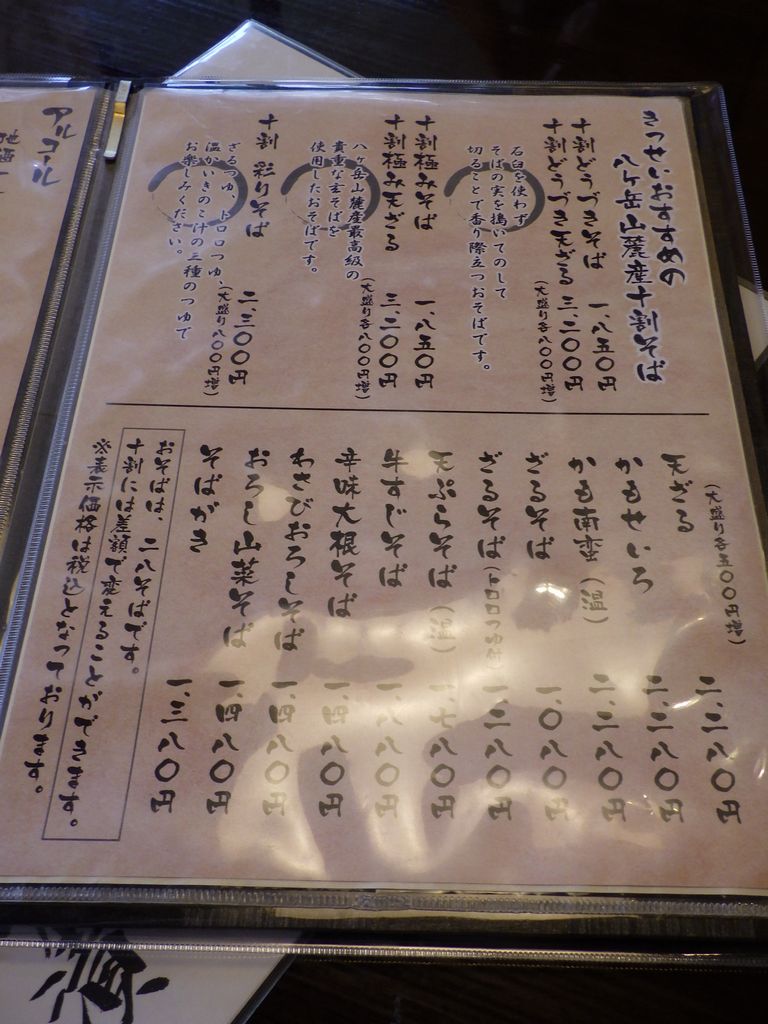 きっせいおすすめの
八ヶ岳山麓産十割そば
十割どうづきそば 一、八五〇円
十割どうづき天ざる 三、二〇〇円
(大盛り各八〇〇円増)
石臼を使わず
そばの実を搗いてのして
切ることで香り際立つおそばです。
十割極みそば 一、八五〇円
十割極み天ざる 三、二〇〇円
(大盛り各八〇〇円増)
八ヶ岳山麓産最高級の
貴重な玄そばを
使用したおそばです。
十割 彩りそば 二、三〇〇円
(大盛り八〇〇円増)
ざるつゆ、トロロつゆ、
温かいきのこ汁の三種のつゆで
お楽しみください。
(大盛り各五〇〇円増)
天ざる 二、二八〇円
かもせいろ 二、二八〇円
かも南蛮(温) 二、二八〇円
ざるそば 一、〇八〇円
ざるそば(トロロつゆ付) 一、二八〇円
天ぷらそば(温) 一、七八〇円
牛すじそば 一、八八〇円
辛味大根そば 一、四八〇円
わさびおろしそば 一、四八〇円
おろし山菜そば 一、四八〇円
そばがき 一、三八〇円
おそばは、二八そばです。
十割には差額で変えることができます。
※表示価格は税込となっております。
アルコール
地酒